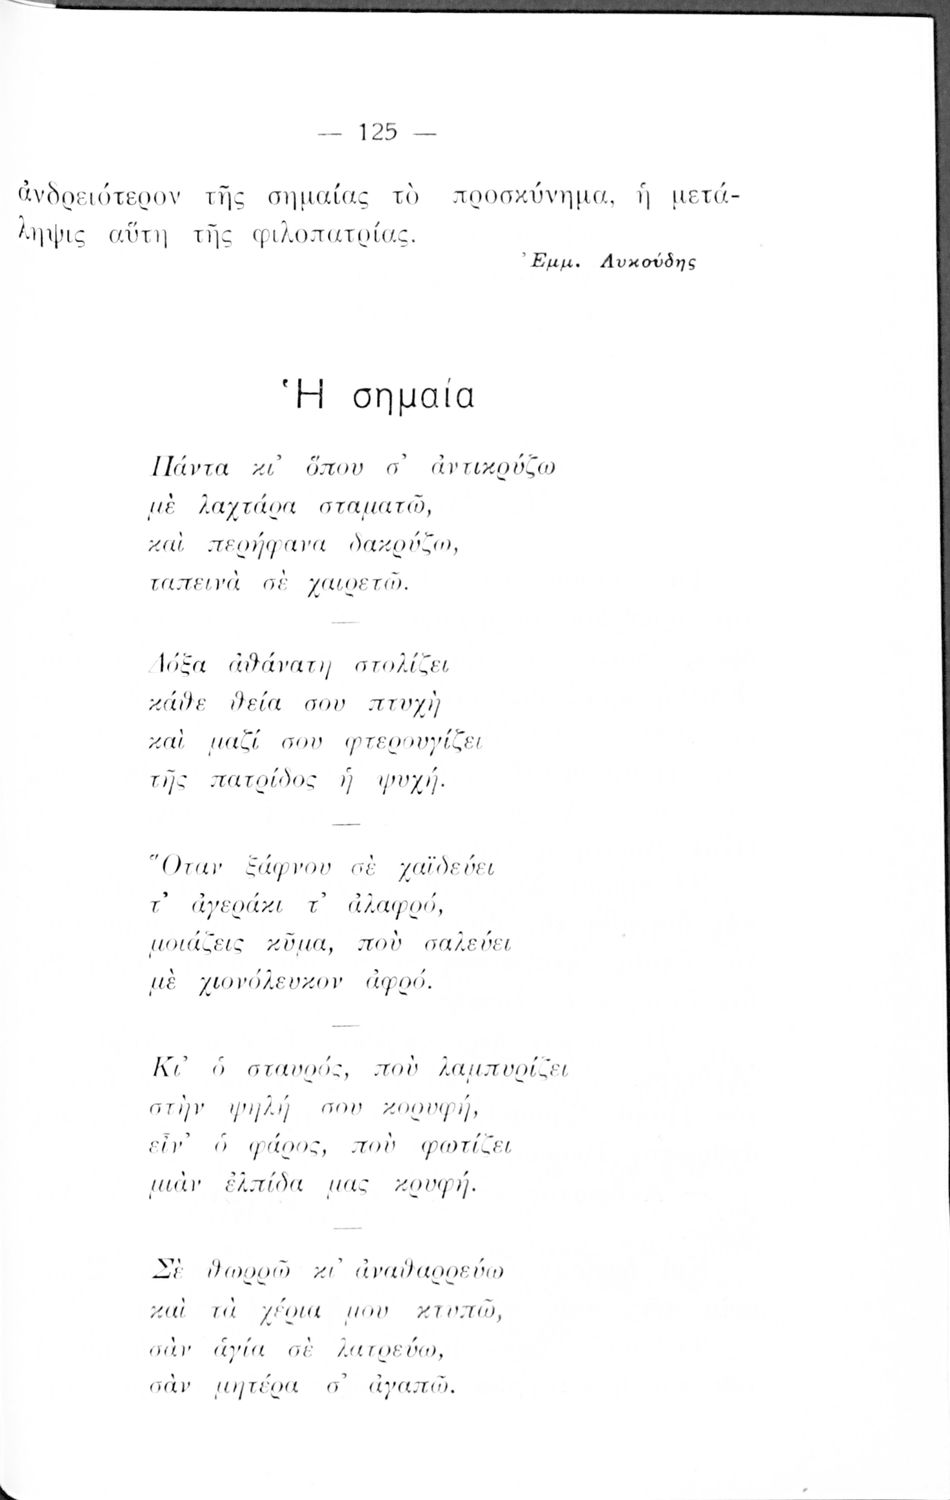 — 125 —
ἀνδρειότερον τῆς σημαίας τὸ προσκύνημα, ἡ μετά-
ληψις αὕτη τῆς φιλοπατρίας.
Ἐμμ. Λυκούδης
Ἡ σημαία
Πάντα κι’ ὅπου σ’ ἀντικρύζω
μὲ λαχτάρα σταματῶ,
καὶ περήφανα δακρύζω,
ταπεινὰ σὲ χαιρετῶ.
Δόξα ἀθάνατη στολίζει
κάθε θεία σου πτυχὴ
καὶ μαζί σου φτερουγίζει
τῆς πατρίδος ἡ ψυχή.
Ὅταν ξάφνου σὲ χαϊδεύει
τ’ ἀγεράκι τ’ ἀλαφρό,
μοιάζεις κῦμα, ποὺ σαλεύει
μὲ χιονόλευκον ἀφρό.
Κι’ ὁ σταυρός, ποὺ λαμπυρίζει
στὴν ψηλή σου κορυφή,
εἶν’ ὁ φάρος, ποὺ φωτίζει
μιὰν ἐλπίδα μας κρυφή.
Σὲ θωρρῶ κι’ ἀναθαρρεύω
καὶ τὰ χέρια μου κτυπῶ,
σὰν ἁγία σὲ λατρεύω,
σὰν μητέρα σ’ ἀγαπῶ.